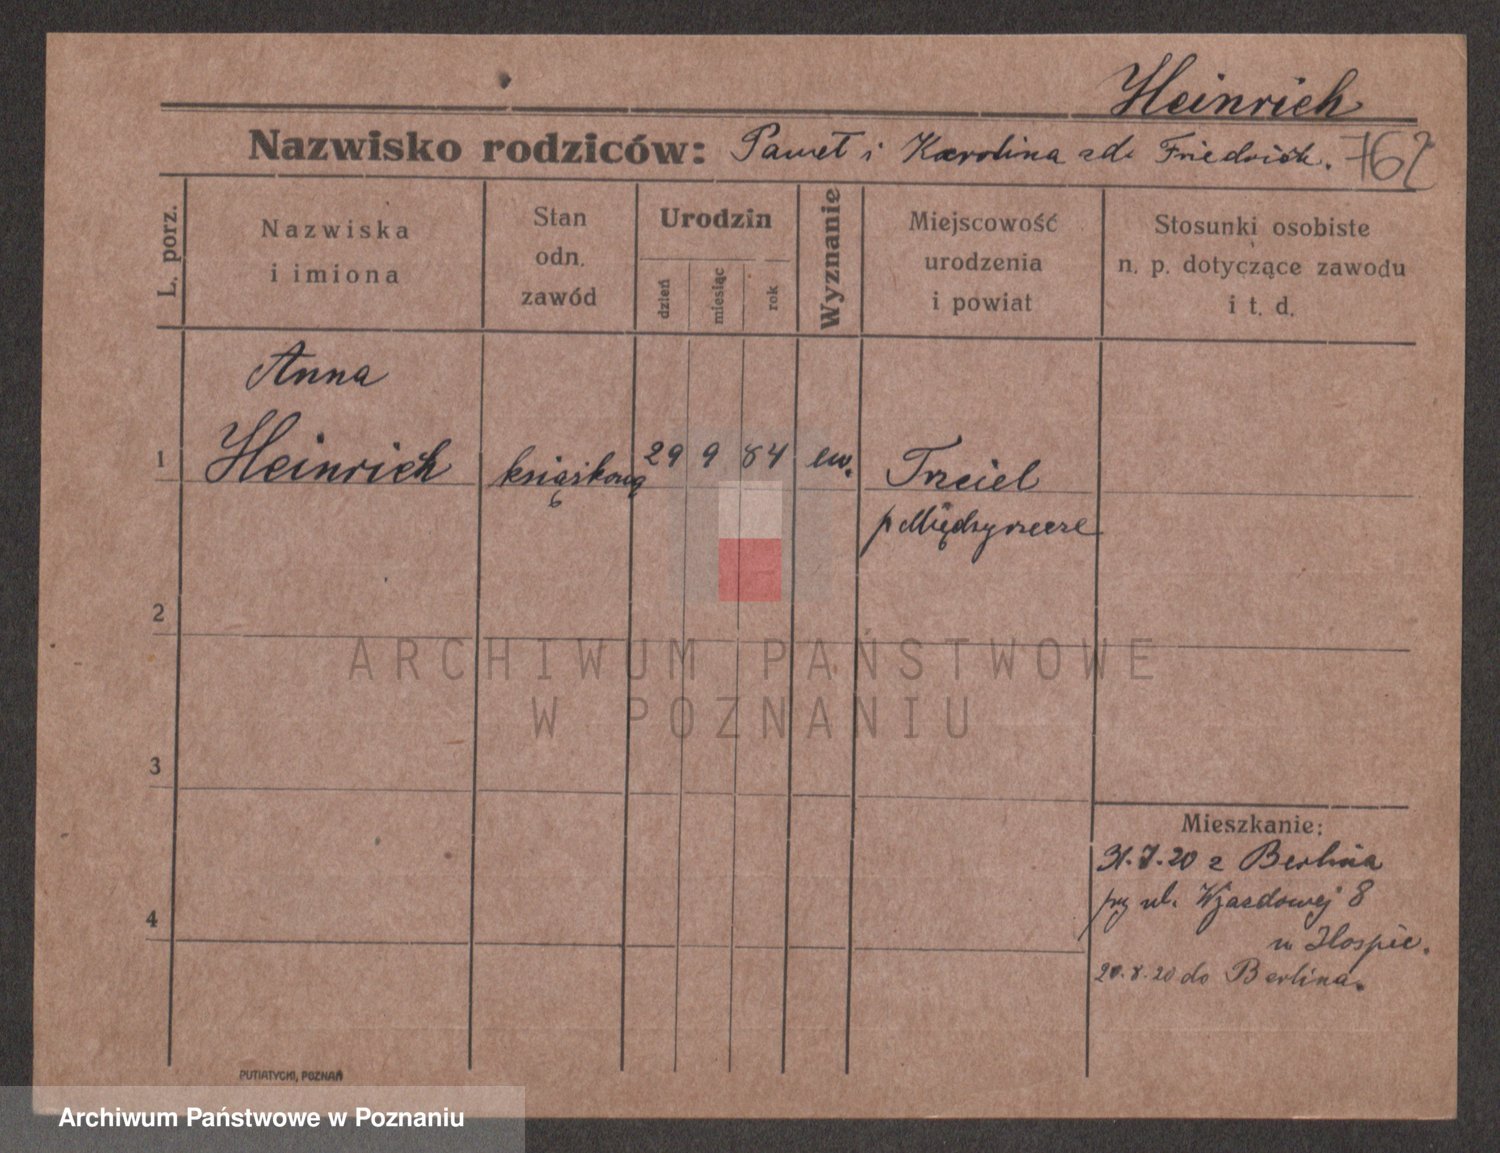 Heinrich
Nazwisko rodziców: Paweł i Karolina zd. Friedrich. 762
L. porz.
Nazwiska
i imiona
Stan
odn.
zawód
Urodzin
dzień
miesiąc
rok
Wyznanie
Miejscowość
urodzenia
i powiat
Stosunki osobiste
n. p. dotyczące zawodu
i t. d.
Anna
1 Heinrich książkową 29 9 84 ew. Trzciel
p Międzyrzecze
2
ARCHIWUM PAŃSTWOWE
W POZNANIU
3
Mieszkanie:
31.7.20 z Berlina
przy ul. Wjazdowej 8
4
w Hospic.
20.8.20 do Berlina.
PUTIATYCKI, POZNAŃ
Archiwum Państwowe w Poznaniu